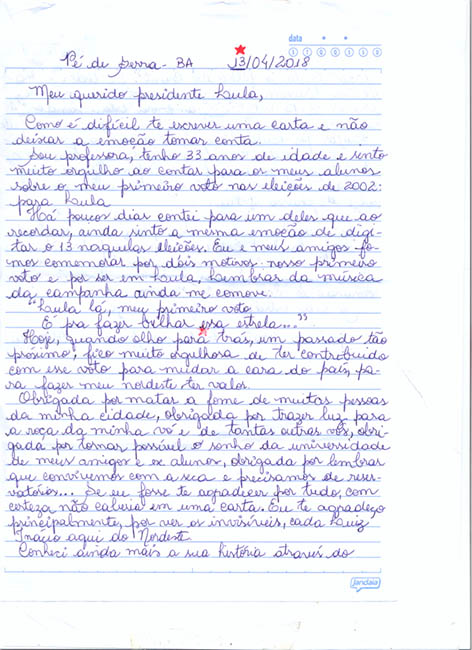 data
Pé de Serra - BA 13/04/2018
Meu querido presidente Lula,
Como é difícil te escrever uma carta e não
deixar a emoção tomar conta.
Sou professora, tenho 33 anos de idade e sinto
muito orgulho ao contar para os meus alunos
sobre o meu primeiro voto nas eleições de 2002:
para Lula
Há poucos dias contei para um deles que ao
recordar, ainda sinto a mesma emoção de digi-
tar o 13 naquelas eleições. Eu e meus amigos fo-
mos comemorar por dois motivos: nosso primeiro
voto e por ser em Lula, Lembrar da música
da campanha ainda me comove:
"Lula lá, meu primeiro voto
É pra fazer brilhar essa estrela..."
Hoje, quando olho para trás, um passado tão
próximo, fico muito orgulhosa de ter contribuído
com esse voto para mudar a cara do país, pa-
ra fazer meu nordeste ter valor.
Obrigada por matar a fome de muitas pessoas
da minha cidade, obrigada por trazer luz para
a roça da minha vó e de tantas outras vós, obri-
gada por tornar possível o sonho da universidade
de meus amigos e ex alunos, obrigada por lembrar
que convivemos com a seca e precisamos de reser-
vatórios... Se eu fosse te agradecer por tudo, com
certeza não caberia em uma carta. Eu te agradeço
principalmente, por ver os invisíveis, cada Luiz
Inácio aqui do Nordeste
Conheci ainda mais a sua história através do
jandaia